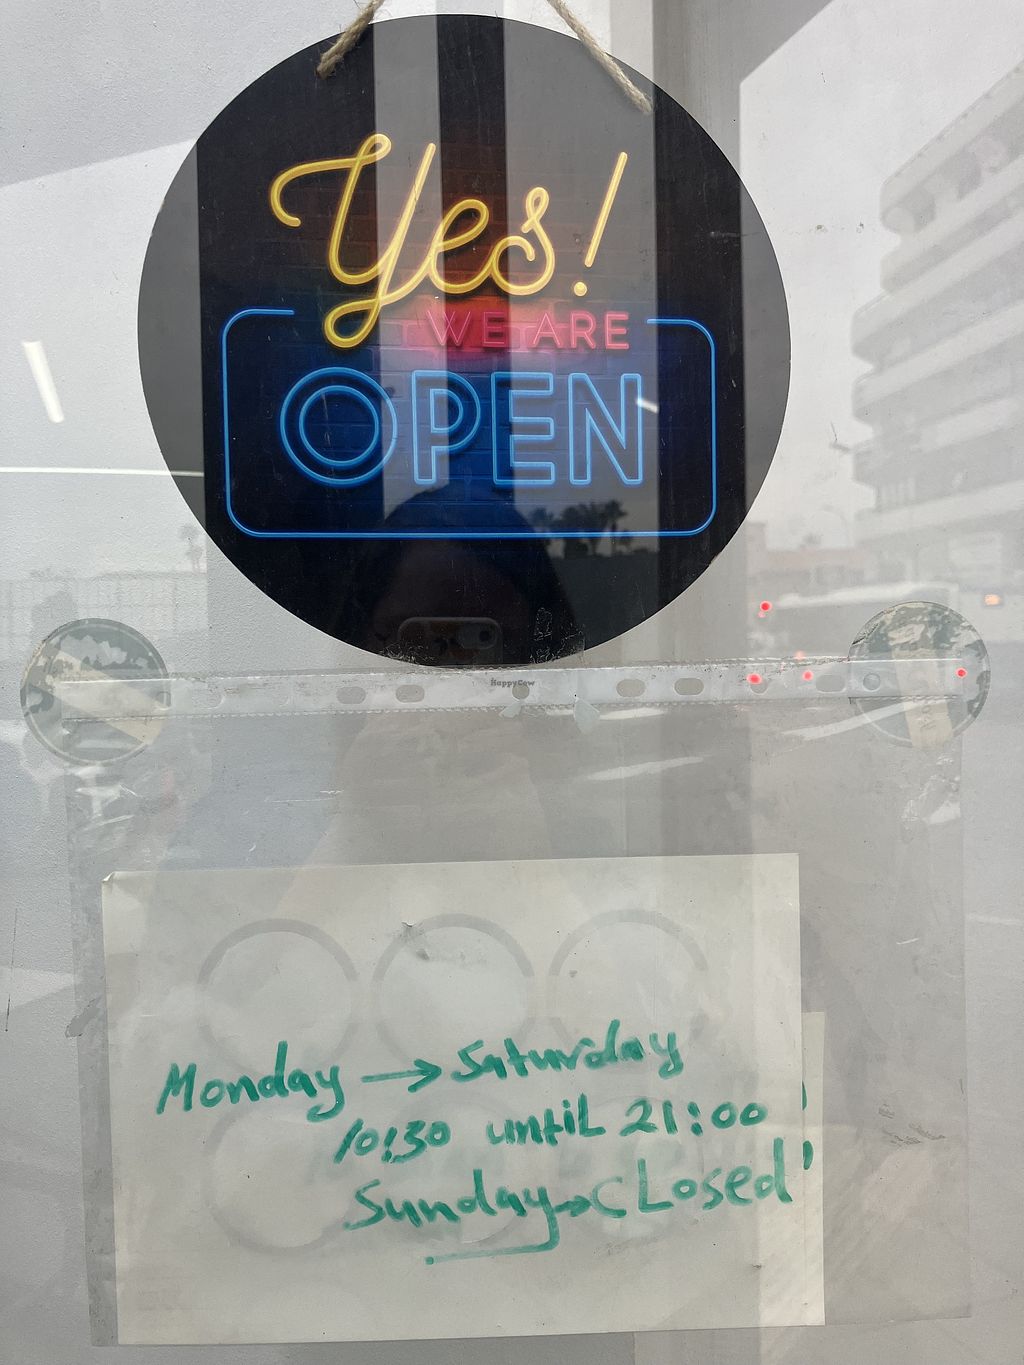 Yes!
WE ARE
OPEN
HappyCow
Monday → Saturday
10:30 until 21:00
Sunday → CLosed